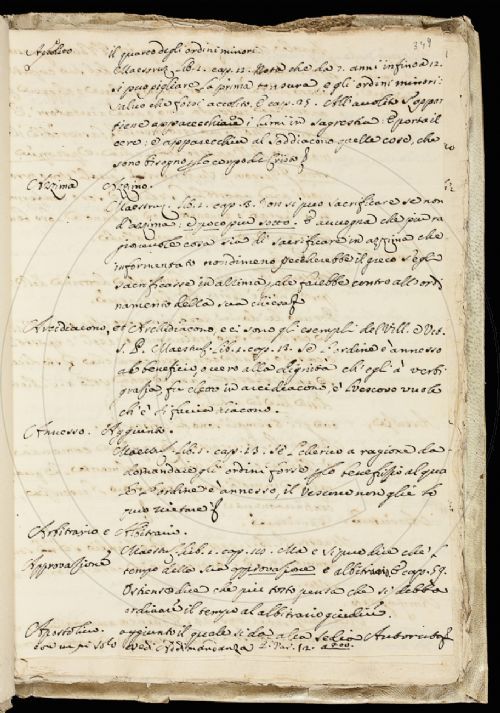 349
Accolito il quarto degli ordini minori.
Maestruz. lib. 1. cap. 12. Nota che da 7. anni infino a 12.
si può pigliare la prima tonsura, e gli ordini minori:
salvo che forse accolito. E cap. 25. All'accolito s'appar
tiene apparecchiare i lumi in sagrestia: e porta il
cero: e apparecchia al soddiacono quelle cose, che
sono bisogno
Azzima Azzimo.
Maestruz. lib. 1. cap. 8. Non si può sacrificare se non
d'azzima: e poco più sotto. E avvegna che più ra
gionevole cosa sia di sacrificare in azzima che
infermentato nondimeno peccherebbe il greco s'egli
sacrificasse in azzima, se facesse contro all'ordi
namento della sua chiesa
Arcidiacono, et Archidiacono, e ci sono gli esempli del Vill. e Vit.
S. P. Maestruz. lib. 1. cap. 13. Se l'ordine è annesso
al beneficio, ovvero alla dignità ch'egli à verbi
grazia fu eletto in arcidiacono, e 'l vescovo vuole
ch'e' si faccia diacono.
Annesso. Aggiunto.
Maestruz. lib. 1. cap. 13. Se 'l cherico a ragione da
domandare gli ordini forse beneficio al qua
le l'ordine è annesso, il vescovo non gliele
può vietare
Arbitrario e Albitrario.
Approvassione Maestruz. lib. 1. cap. Ma e' si può dire che 'l
tempo della sua approvasione è albitrario, E cap. 59.
Ostense dice che più tosto pensa che si debba
ordinare il tempo al albitrario
Apostolico. aggiunto il quale si dà alla sedia